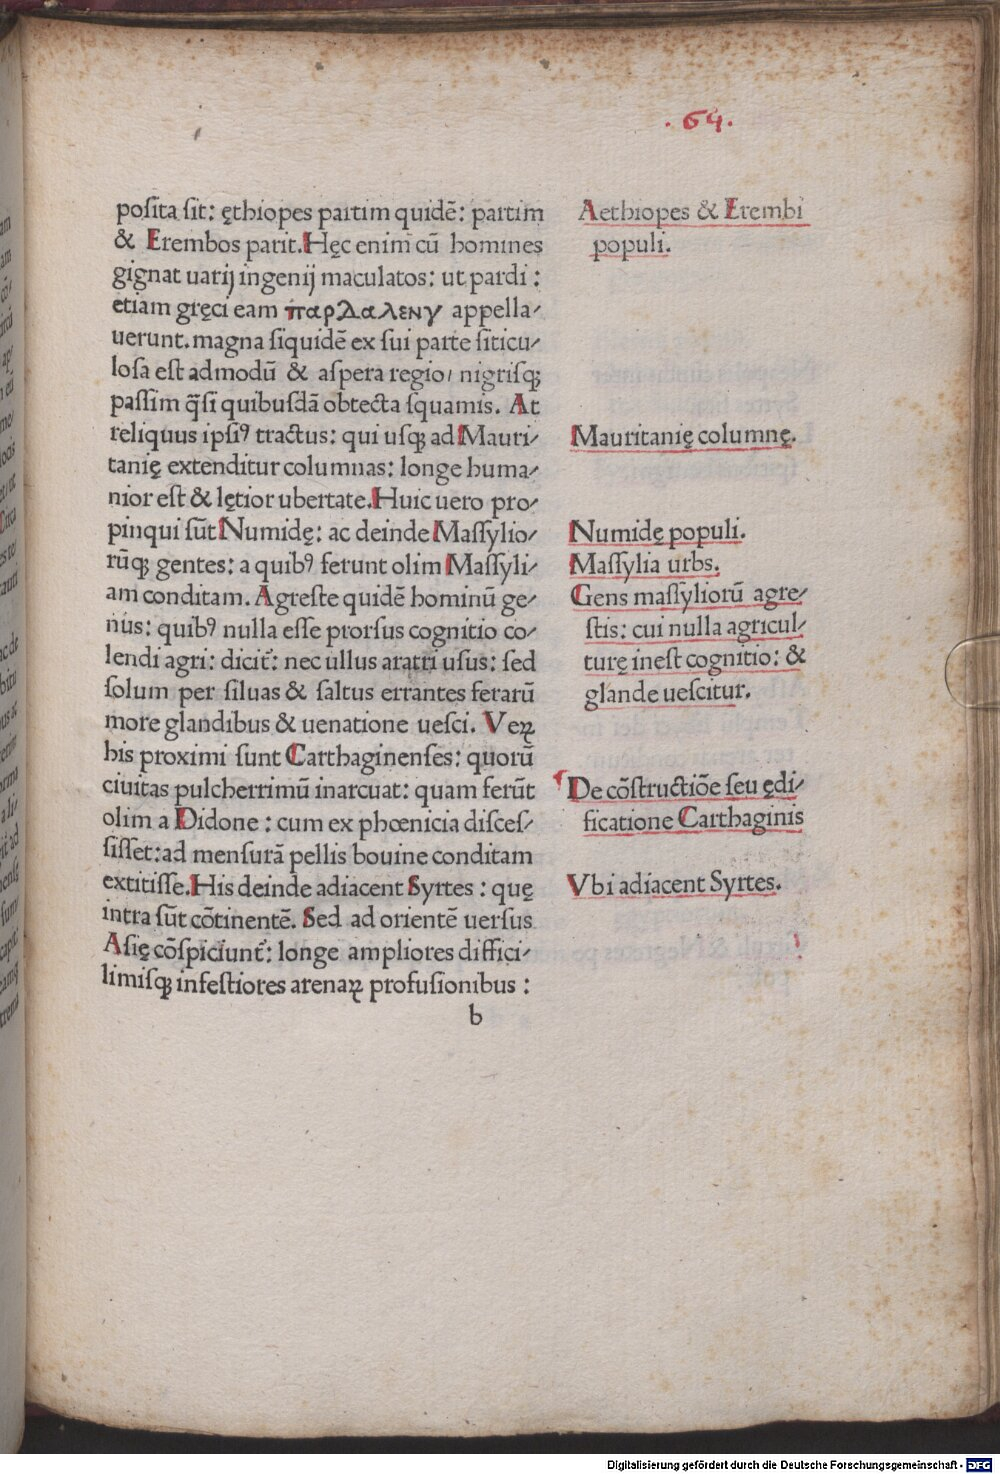 . 64 .
poſita ſit: ęthiopes partim quidē: partim
& Erembos parit. Hęc enim cū homines
gignat uarij ingenij maculatos: ut pardi:
etiam gręci eam παρΔαλενγ appella⸗
uerunt. magna ſiquidē ex ſui parte ſiticu⸗
loſa eſt admodū & aſpera regio, nigriſqꝫ
paſſim q̄ſi quibuſdā obtecta ſquamis. At
reliquus ipſiꝰ tractus: qui uſqꝫ ad Mauri⸗
tanię extenditur columnas: longe huma⸗
nior eſt & lętior ubertate. Huic uero pro⸗
pinqui ſūt Numidę: ac deinde Maſſylio⸗
rūqꝫ gentes: a quibꝰ ferunt olim Maſſyli⸗
am conditam. Agreſte quidē hominū ge⸗
nus: quibꝰ nulla eſſe prorſus cognitio co⸗
lendi agri: dicit̄: nec ullus aratri uſus: ſed
ſolum per ſiluas & ſaltus errantes ferarū
more glandibus & uenatione ueſci. Veꝝ
his proximi ſunt Carthaginenſes: quorū
ciuitas pulcherrimū inarcuat: quam ferūt
olim a Didone: cum ex phœnicia diſceſ⸗
ſiſſet: ad menſurā pellis bouine conditam
extitiſſe. His deinde adiacent Syrtes: quę
intra ſūt cōtinentē. Sed ad orientē uerſus
Aſię cōſpiciunt̄: longe ampliores diffici⸗
limiſqꝫ infeſtiores arenaꝝ profuſionibus:
b
Aethiopes & Erembi
populi.
Mauritanię columnę.
Numidę populi.
Maſſylia urbs.
Gens maſſyliorū agre⸗
ſtis: cui nulla agricul⸗
turę ineſt cognitio: &
glande ueſcitur.
De cōſtructiōe ſeu ędi⸗
ficatione Carthaginis
Vbi adiacent Syrtes.
Digitalisierung gefördert durch die Deutsche Forschungsgemeinschaft - DFG